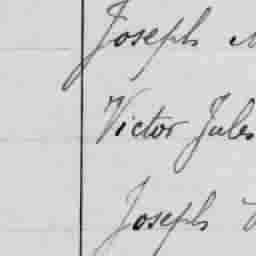 Joseph
Victor Jules
Joseph